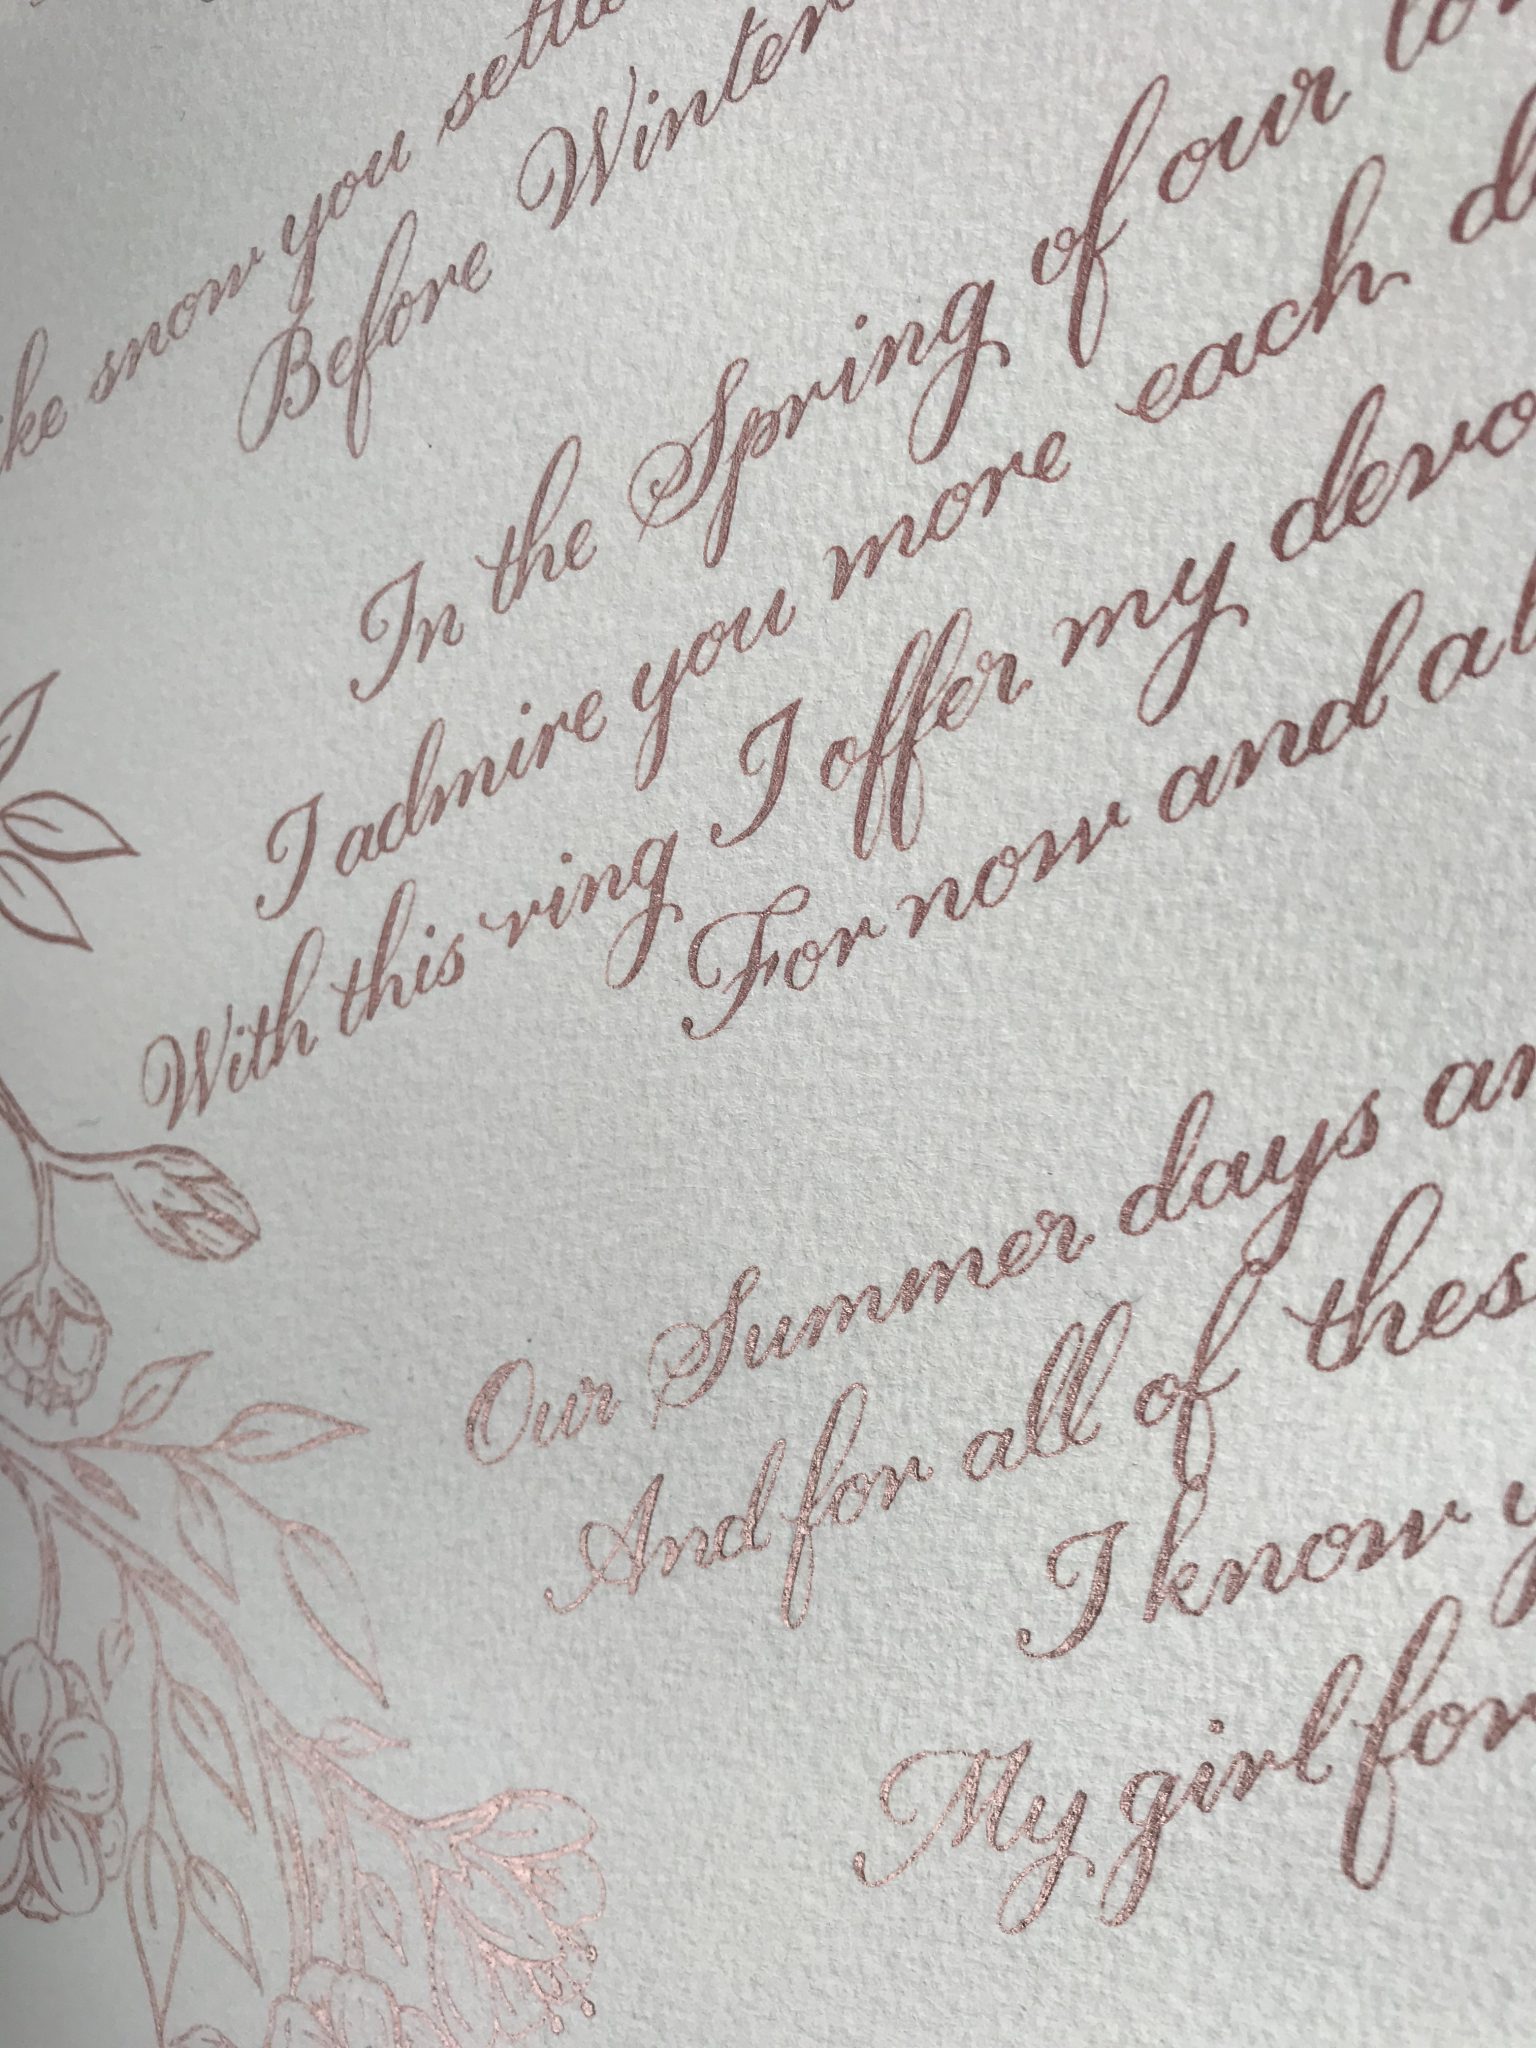 snow you
Before Winter
In the Spring of our
I admire you more each
With this ring I offer my
For now and
Our Summer days
And for all of
I know
My girl